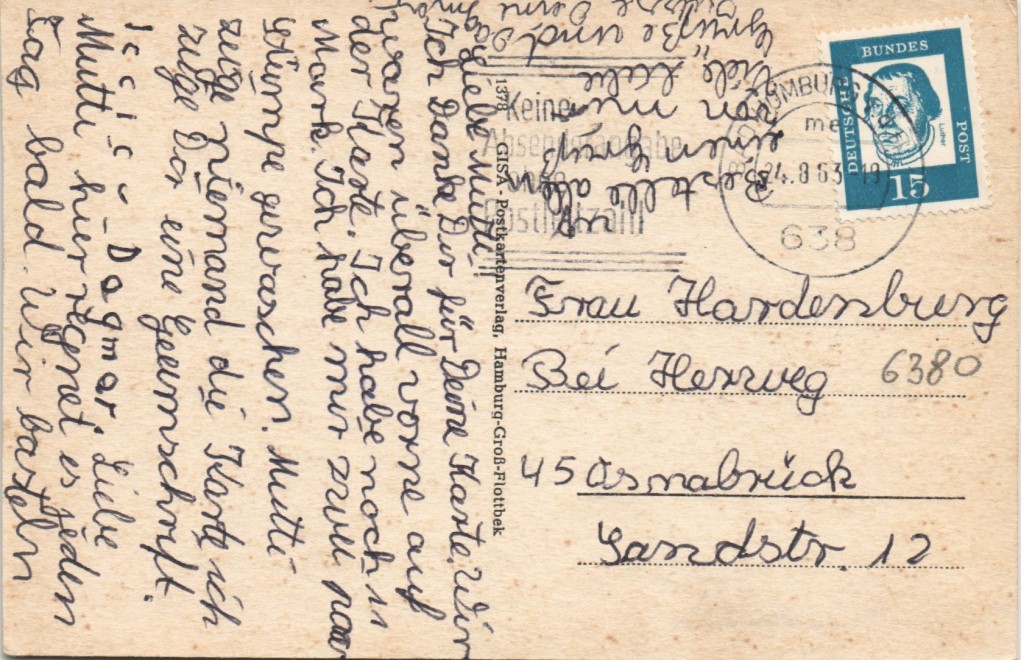 Liebe Mutti!
Ich Danke Dir für Deine Karte. Wir
waren überall vorne auf
der Karte. Ich habe noch 11
Mark. Ich habe mir zwei paar
Stümpe gewaschen. Mutti
zeige niemand die Karte ich
zeige Dir eine Geeimschrift.
Dagmar. Liebe
Mutti hier regnet es jeden
Tag bald. Wir basteln
Bestelle allen
einen Gruß
von mir
Viele liebe
Grüße und
1378 GISA-Postkartenverlag, Hamburg-Groß-Flottbek
Keine
Absenderangabe
ohne
Postleitzahl
HOMBURG
24.8.63-19
638
DEUTSCHE
BUNDES
POST
Luther
15
Frau Hardenburg
Bei Herweg
6380
45 Osnabrück
Sandstr. 12